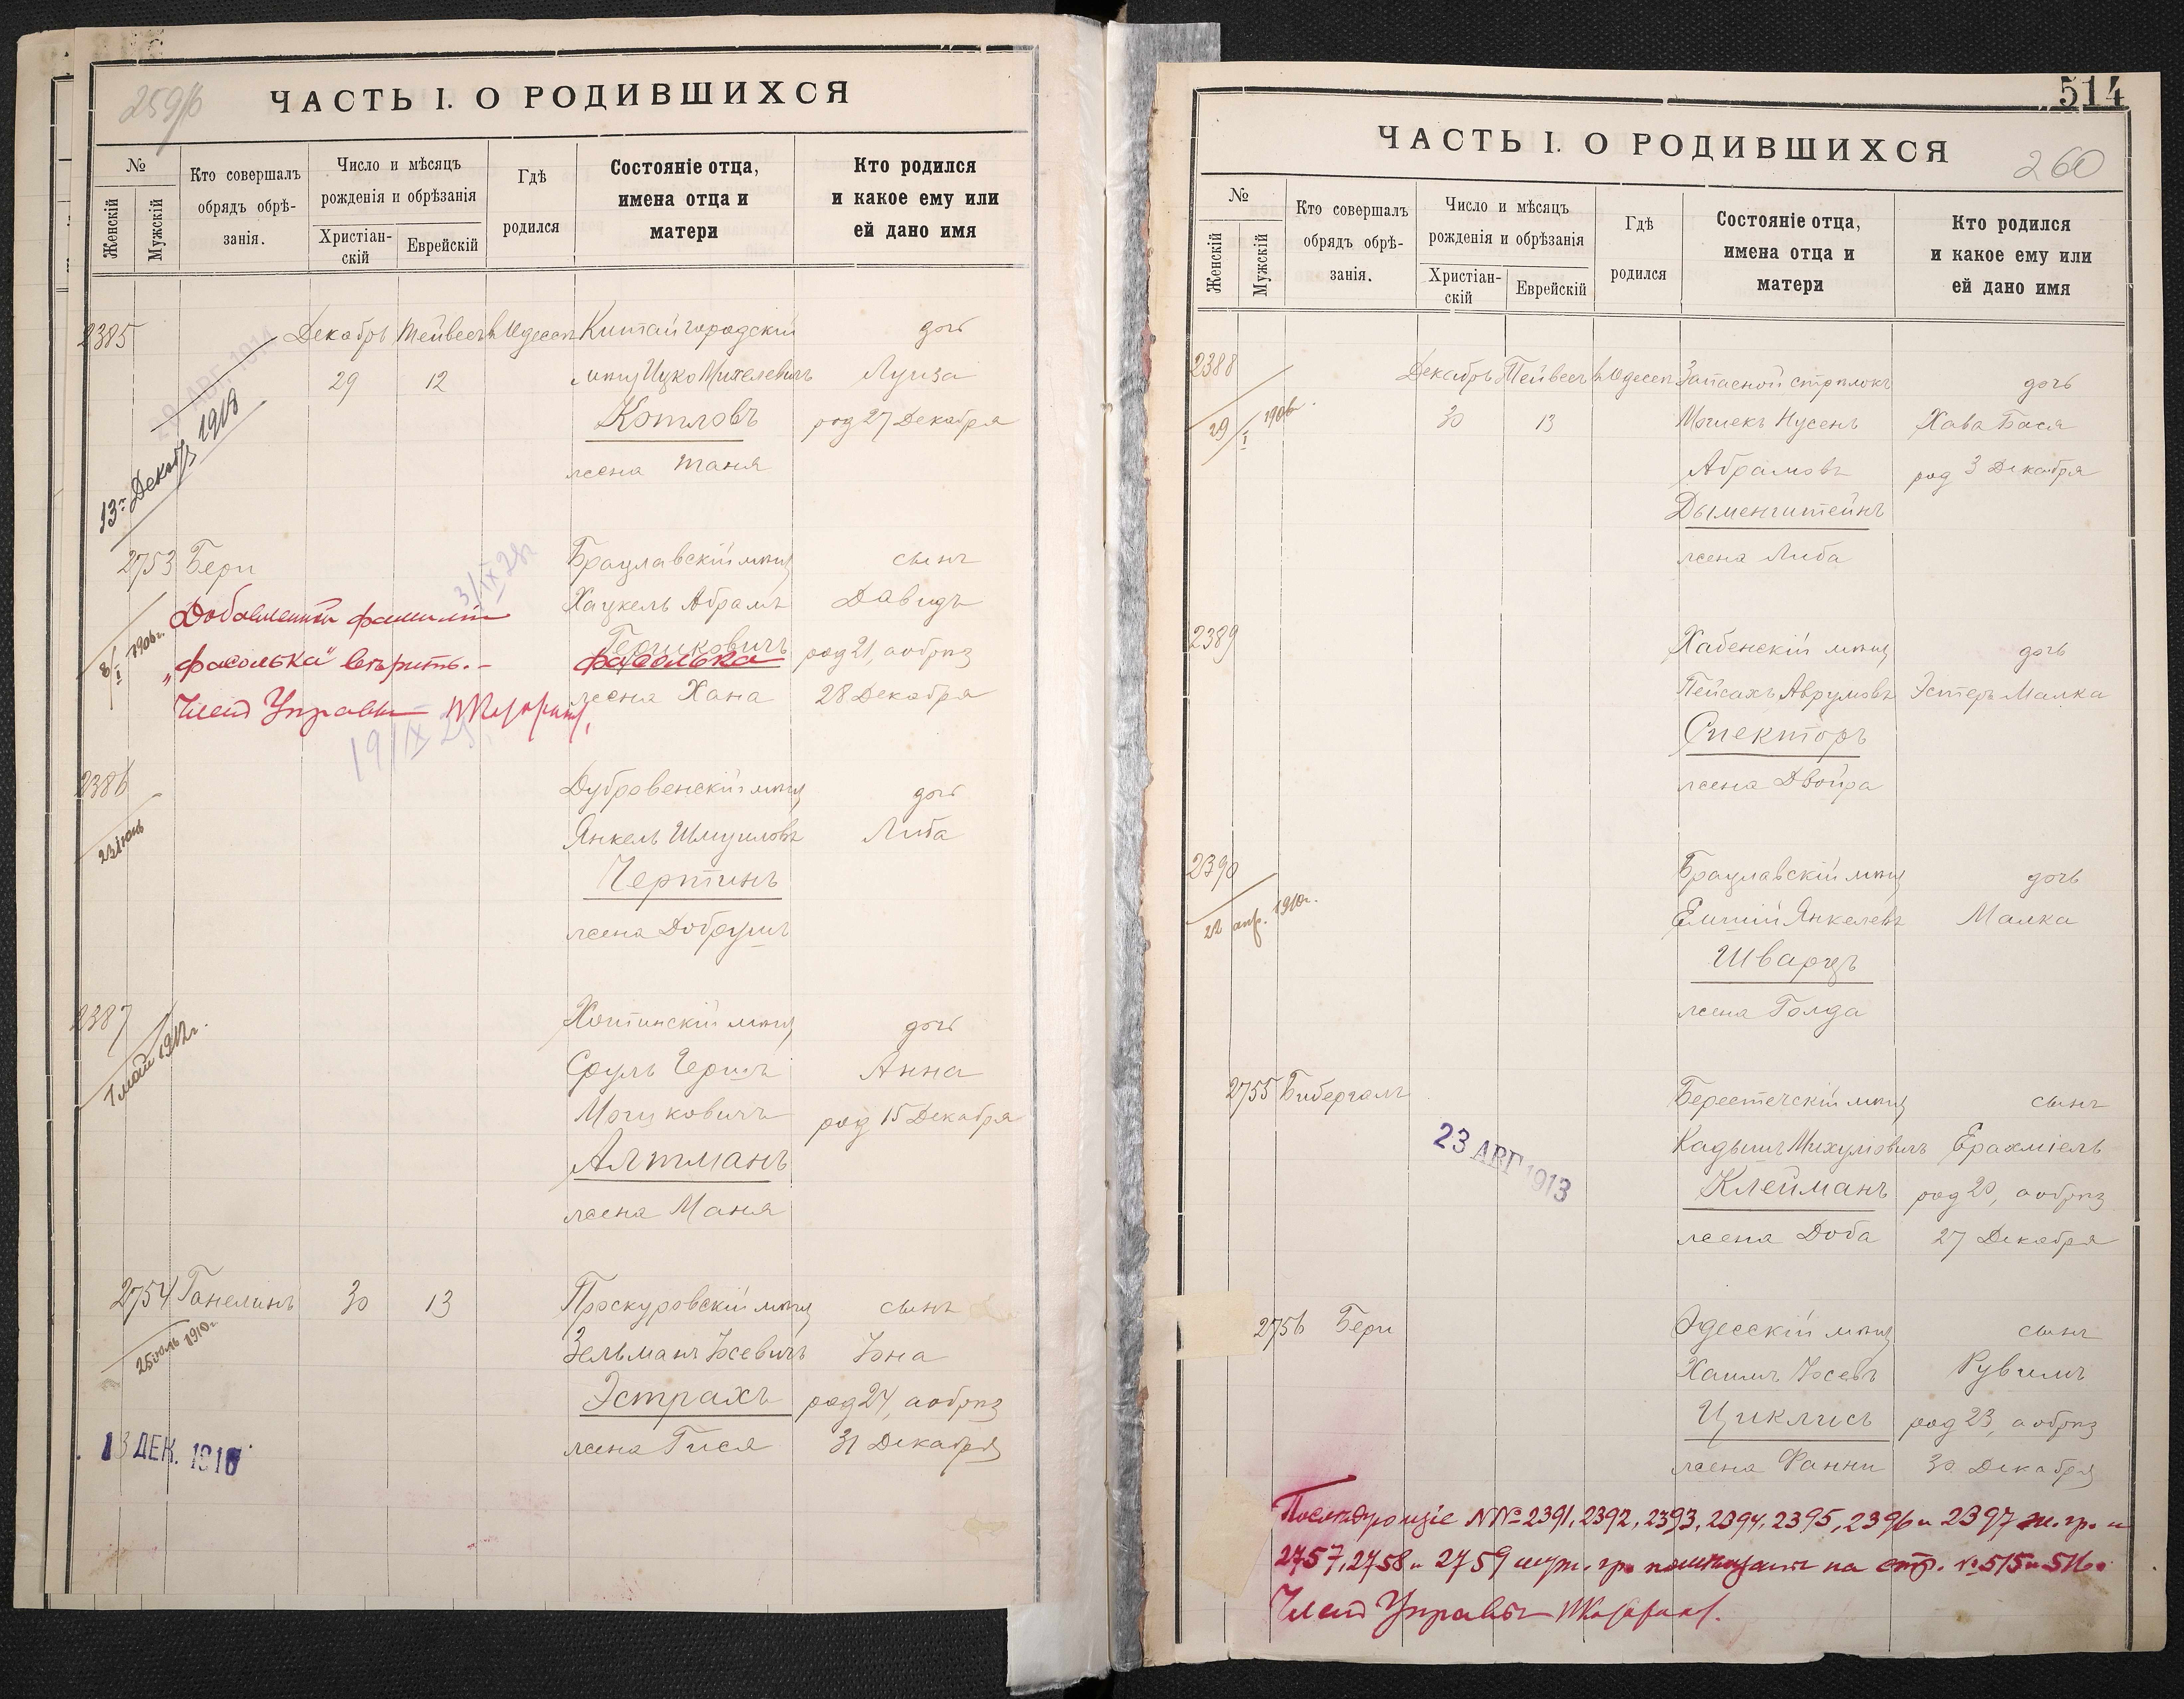 259/б
ЧАСТЬ I. О РОДИВШИХСЯ
№
Женскій
Мужскій
Кто совершалъ
обрядъ обрѣ-
занія.
Число и мѣсяцъ
рожденія и обрѣзанія
Христіан-
скій
Еврейскій
Гдѣ
родился
Состояніе отца,
имена отца и
матери
Кто родился
и какое ему или
ей дано имя
2385 Декабрь Тейвесъ въ Одессѣ Китайгородскій дочь
29 12 мѣщ Ицко Михелевичъ Луиза
Котловъ род 27 Декабря
жена Таня
13го Декабр 1918
2753 Бери Брацлавскій мѣщ сынъ
3/IX 28г
Хацкель Абрамъ Давидъ
Гершковичъ род 21, а обрѣз
Фасолька
жена Хана 28 Декабря
8/I 1906г.
Добавленной фамиліи
„Фасолька" вѣрить.-
Членъ Управы
19/IX 28
2386 Дубровенскій мѣщ дочь
Янкель Шмуиловъ Либа
Чертинъ
жена Добрушъ
23 Іюнь
2387 Хотинскій мѣщ дочь
Сруль Гершъ Анна
Мошковичъ род 15 Декабря
Алтманъ
жена Маня
7 май 1912г.
2754 Ганелинъ 30 13 Проскуровскій мѣщ сынъ
Зельманъ Іосевичъ Іона
Эстрахъ род 24, а обрѣз
жена Гися 31 Декабря
25 іюль 1910г
13 ДЕК. 1916
514
ЧАСТЬ I. О РОДИВШИХСЯ
260
№
Женскій
Мужскій
Кто совершалъ
обрядъ обрѣ-
занія.
Число и мѣсяцъ
рожденія и обрѣзанія
Христіан-
скій
Еврейскій
Гдѣ
родился
Состояніе отца,
имена отца и
матери
Кто родился
и какое ему или
ей дано имя
2388 Декабрь Тейвесъ въ Одессѣ Запасной стрѣлокъ дочь
30 13 Мошекъ Нусенъ Хава Бася
Абрамовъ род 3 Декабря
Дыменштейнъ
жена Либа
29/I 1906г.
2389 Хабенскій мѣщ дочь
Пейсахъ Аврумовъ Эстеръ Малка
Спекторъ
жена Двойра
2390 Брацлавскій мѣщ дочь
Янкелевъ Малка
Шварцъ
жена Голда
22 апр. 1910г.
2755 Бибергалъ Берестечскій мѣщ сынъ
Кадышъ Михулевичъ Ерахміель
Клейманъ род 20, а обрѣз
жена Доба 27 Декабря
23 АВГ 1913
2756 Бери Одесскій мѣщ сынъ
Хаимъ Іосевъ Рувимъ
Циклисъ род 23, а обрѣз
жена Фанни 30 Декабря
Послѣдующіе №№ 2391, 2392, 2393, 2394, 2395, 2396 и 2397 ж. гр. и
2757, 2758 и 2759 муж. гр. помѣщаютъ на стр. № 515 и 516.
Членъ Управы